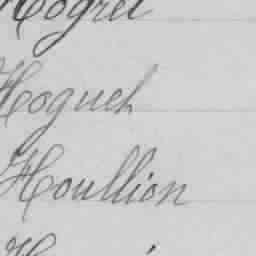 Hogrel
Hoguel
Houllion